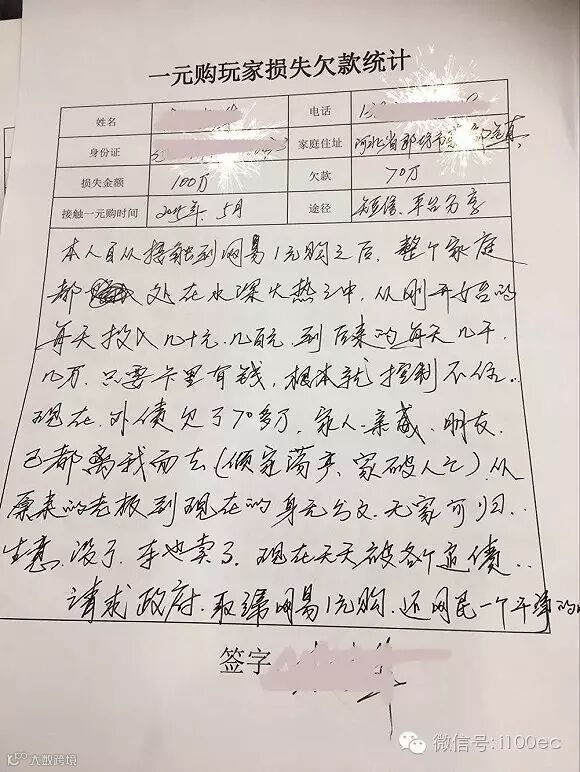 一元购玩家损失欠款统计
姓名 电话 1
身份证 家庭住址 河北省邯郸市
损失金额 100万 欠款 70万
接触一元购时间 2015年.5月 途径 短信.平台分享
本人自从接触到网易1元购之后.整个家庭
都 处在水深火热之中.从刚开始的
每天投入几十元.几百元.到后来的每天几千.
几万.只要卡里有钱.根本就控制不住..
现在.外债欠了70多万.家人.亲戚.朋友.
已都离我而去(倾家荡产、家破人亡)从
原来的老板到现在的身无分文.无家可归..
生意.没了.车也卖了.现在天天被各个追债..
请求政府.取缔网易1元购.还网民一个干净的
签字
微信号:i100ec
大数跨境